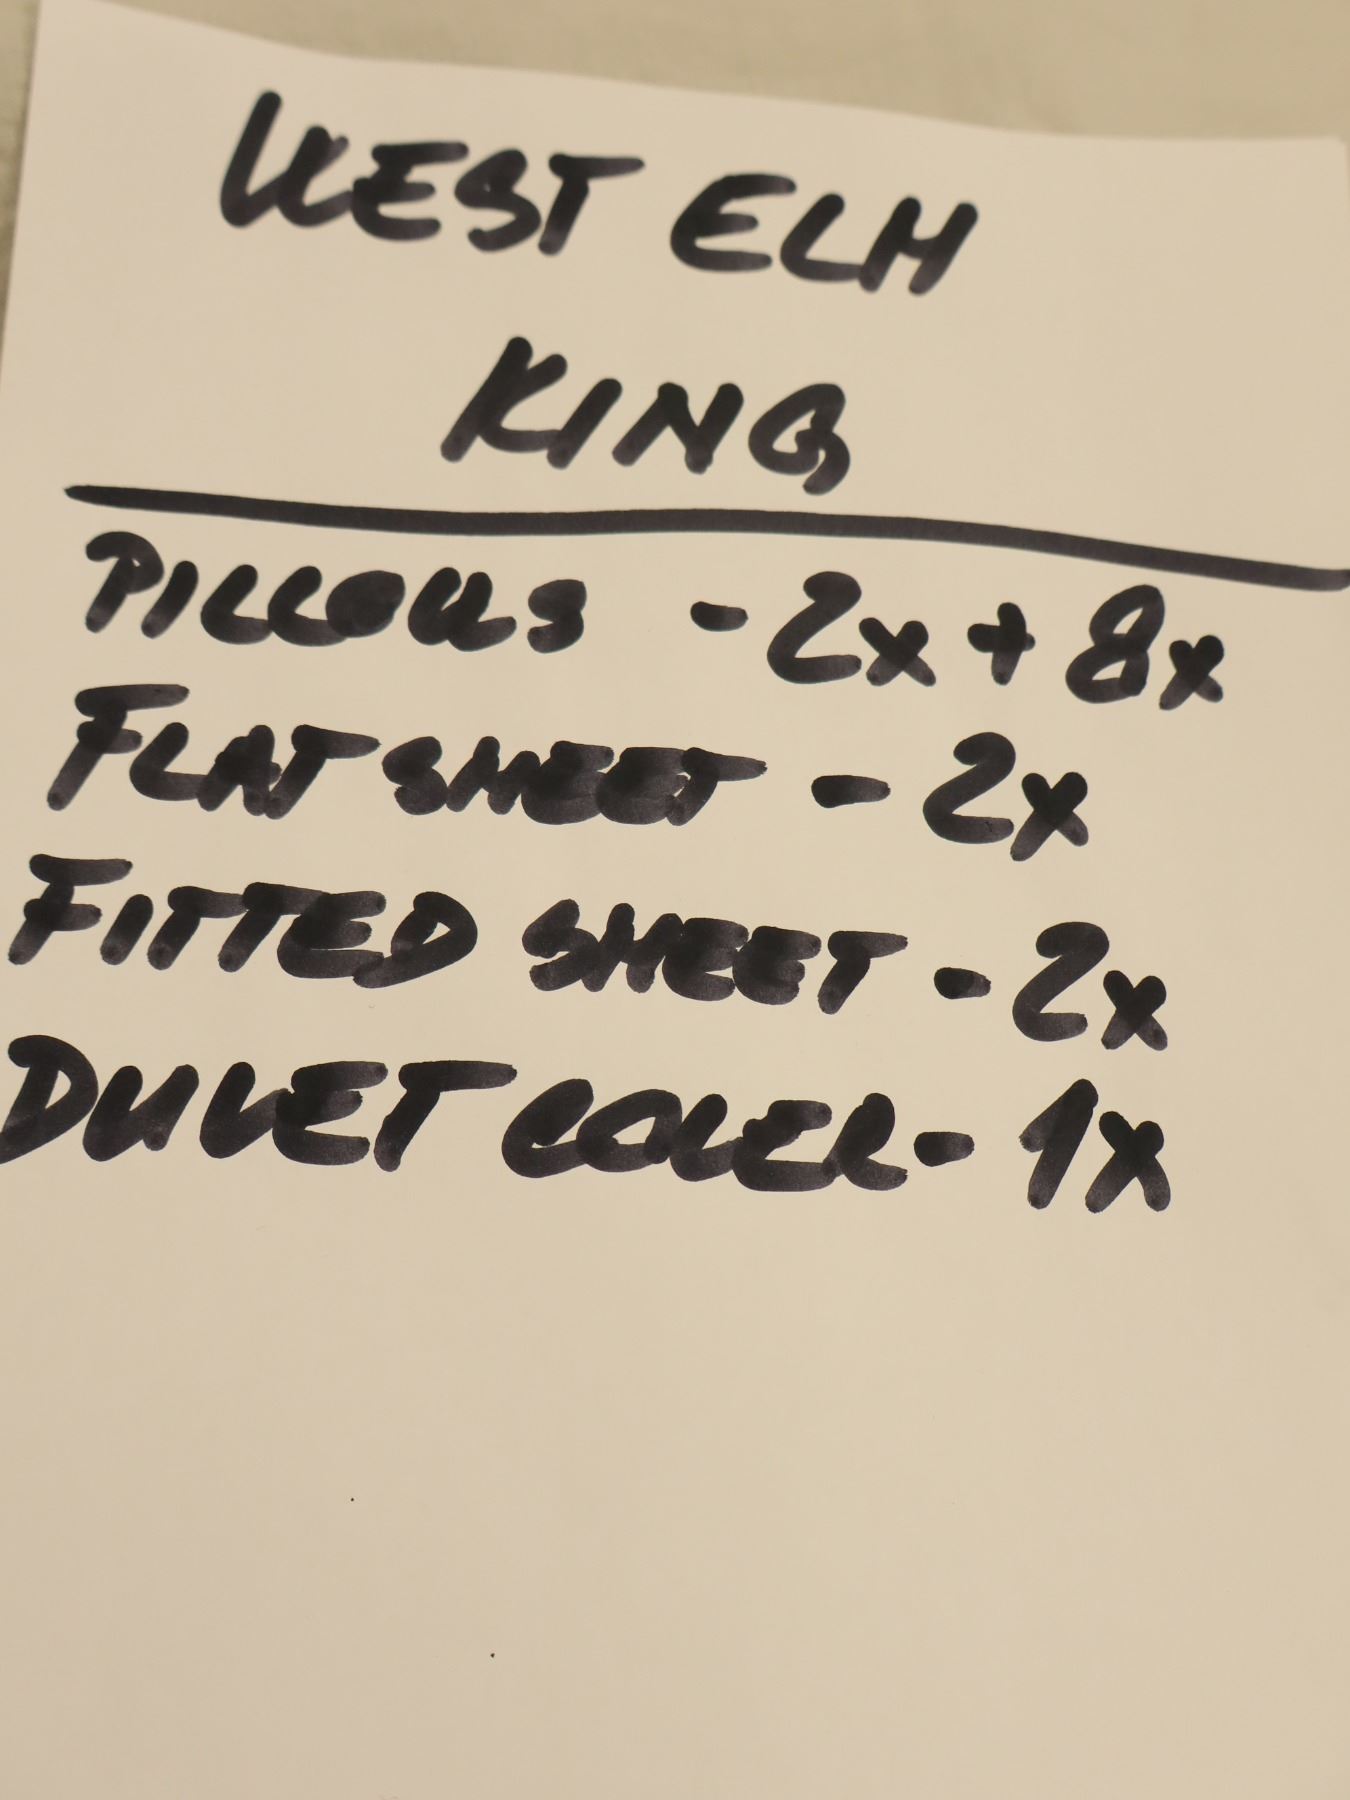 WEST ELM
KING
PILLOWS - 2x + 8x
FLAT SHEET - 2x
FITTED SHEET - 2x
DUVET COVER - 1x